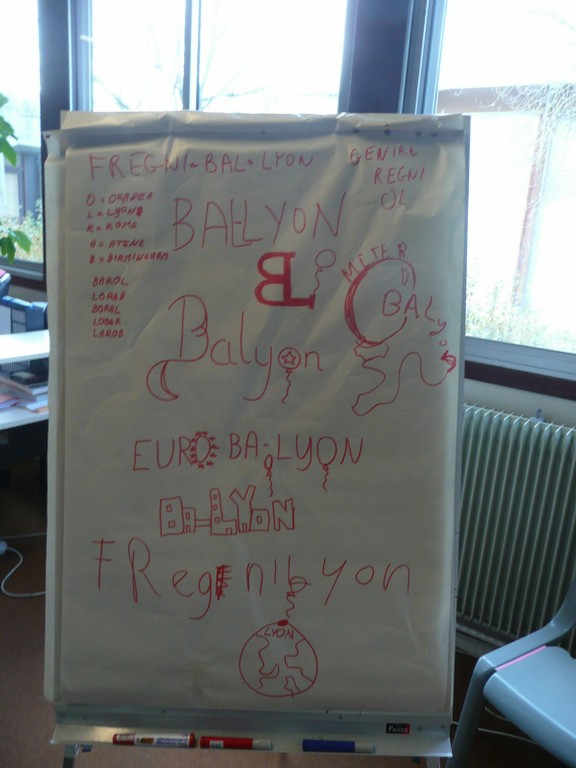 FREGNI-BAL-LYON
GENIAL
REGNI
OL
O = ORADEA
L = LYONS
R = ROMA
A = ATENE
B = BIRMINGHAM
BAROL
LORAB
BORAL
LOBAR
LAROB
BAL-LYON
BL
MITER
D
BALyon
Balyon
EURO BA-LYON
BA-LYON
FRegnilyon
LYON